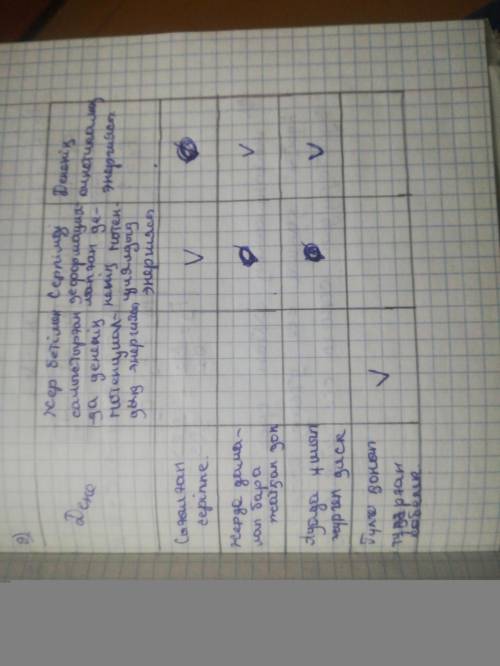 2)
Дене
Жер бетімен
салыстырған-
да дененің
потенциал-
дық энергиясы
Серпімді
деформация-
ланған де-
ненің потен-
циялдық
энергиясы
Дененің
кинетикалық
энергиясы
Сығылған
серіппе.
V
Жерде дома-
лап бара
жатқан доп
V
Ауада ұшып
жүрген диск
V
Гүлге қонып
тұрған
көбелек
V